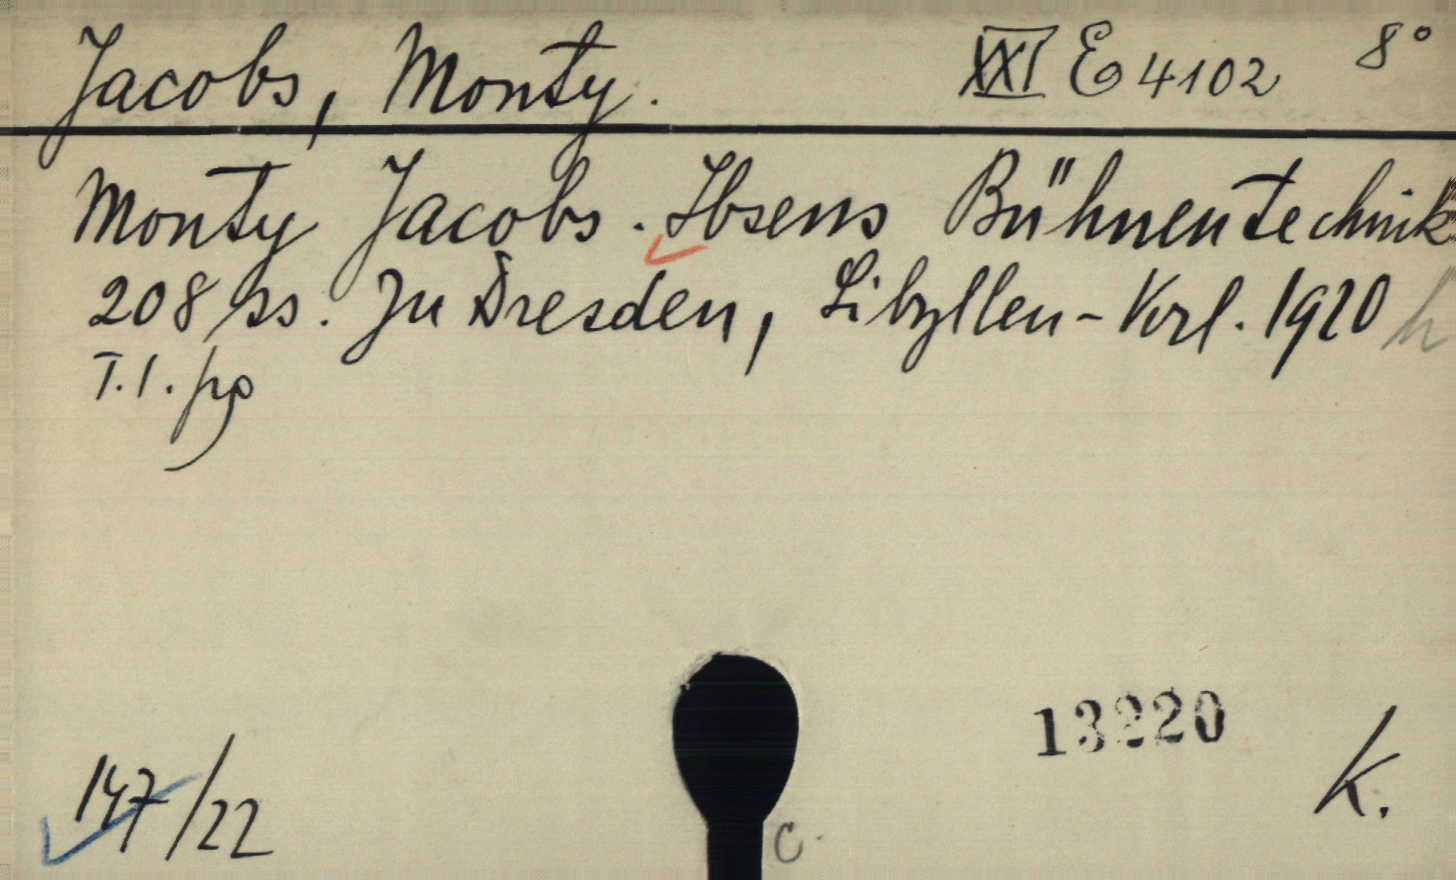 Jacobs, Monty. XXI E 4102 8°
Monty Jacobs. Ibsens Bühnentechnik.
208 ss. Zu Dresden, Sibyllen-Verl. 1920
T. 1. pp
13220
K.
147/22
C.